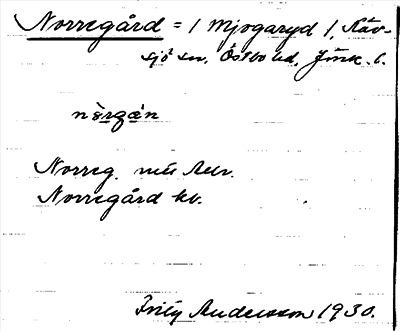 Norregård = 1 Mjogaryd 1, Räv-
sjö sn, Östbo hd, Jönk. l.
Norreg.
Norregård kv.
Fritz Andersson 1930.